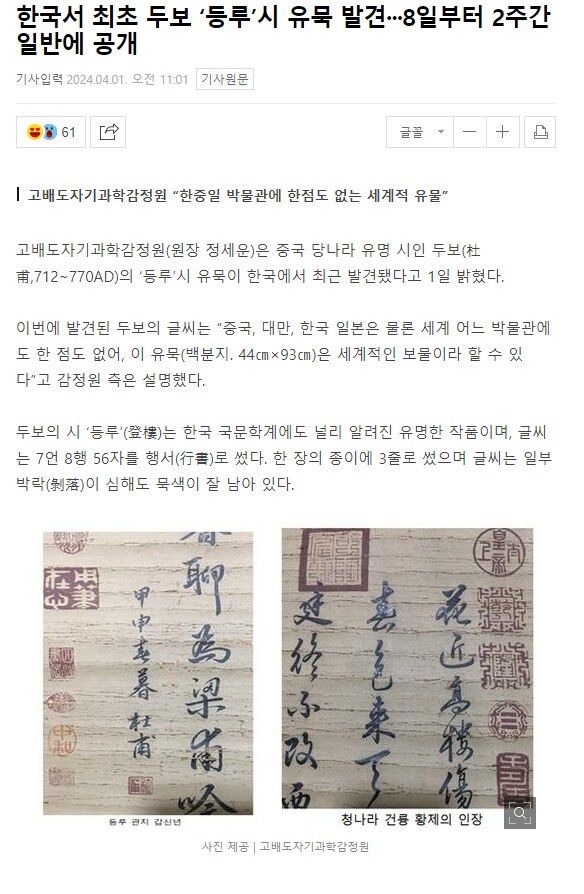 한국서 최초 두보 ‘등루’시 유묵 발견···8일부터 2주간
일반에 공개
기사입력 2024.04.01. 오전 11:01 기사원문
61
글꼴
고배도자기과학감정원 “한중일 박물관에 한점도 없는 세계적 유물”
고배도자기과학감정원(원장 정세운)은 중국 당나라 유명 시인 두보(杜
甫,712~770AD)의 ‘등루’시 유묵이 한국에서 최근 발견됐다고 1일 밝혔다.
이번에 발견된 두보의 글씨는 “중국, 대만, 한국 일본은 물론 세계 어느 박물관에
도 한 점도 없어, 이 유묵(백분지. 44㎝×93㎝)은 세계적인 보물이라 할 수 있
다”고 감정원 측은 설명했다.
두보의 시 ‘등루’(登樓)는 한국 국문학계에도 널리 알려진 유명한 작품이며, 글씨
는 7언 8행 56자를 행서(行書)로 썼다. 한 장의 종이에 3줄로 썼으며 글씨는 일부
박락(剝落)이 심해도 묵색이 잘 남아 있다.
暮聊為梁甫吟
甲申春暮 杜甫
花近高樓傷
春色來天
庭終不改西
등루 관지 갑신년
청나라 건륭 황제의 인장
사진 제공 | 고배도자기과학감정원